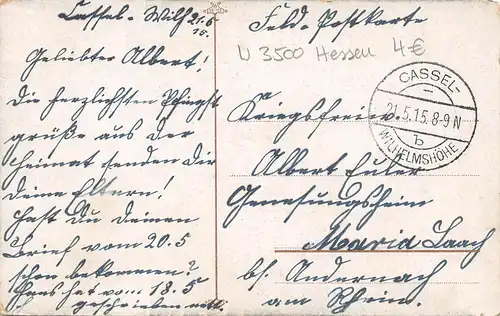 Cassel-Wilh. 21.5
15.
Geliebter Albert!
Die herzlichsten Pfingst
grüße aus der
Heimat senden dir
deine Eltern!
Hast Du deinen
Brief vom 20.5
schon bekommen?
Hans hat vom 18.5
geschrieben
Feld-Postkarte
U 3500 Hessen 4€
CASSEL-
21.5.15.8-9N
b
WILHELMSHÖHE
Kriegsfreiw.
Albert Euler
Genesungsheim
Maria Laach
bei Andernach
am Rhein.